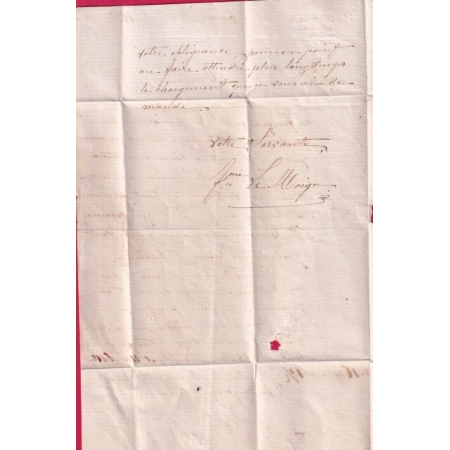 votre obligeance pour ne point
me faire attendre plus longtemps
le chargement que je vous ai de
mandé.
votre Servante
fme Le Moign